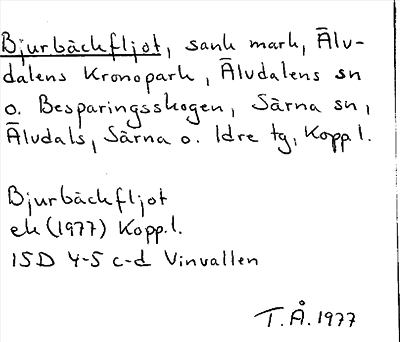 Bjurbäckfljot, sank mark, Älv-
dalens Kronopark, Älvdalens sn
o. Besparingsskogen, Särna sn,
Älvdals, Särna o. Idre tg, Kopp.l.
Bjurbäckfljot
ek (1977) Kopp.l.
15D 4-5 c-d Vinvallen
T.Å. 1977